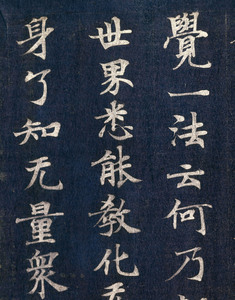 覺一法云何乃
世界悉能教化
身了知无量眾